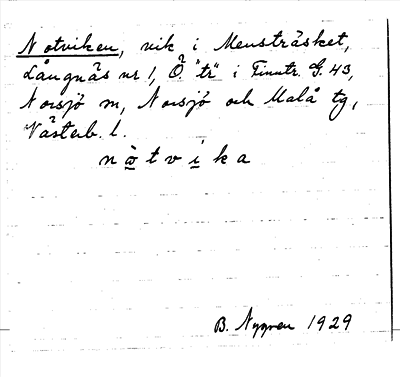 Notviken, vik i Mensträsket,
Långnäs nr 1, Ö "tr" i Finntr. G. 43,
Norsjö sn, Norsjö och Malå tg,
Västerb. l.
nòtvika
B. Nygren 1929